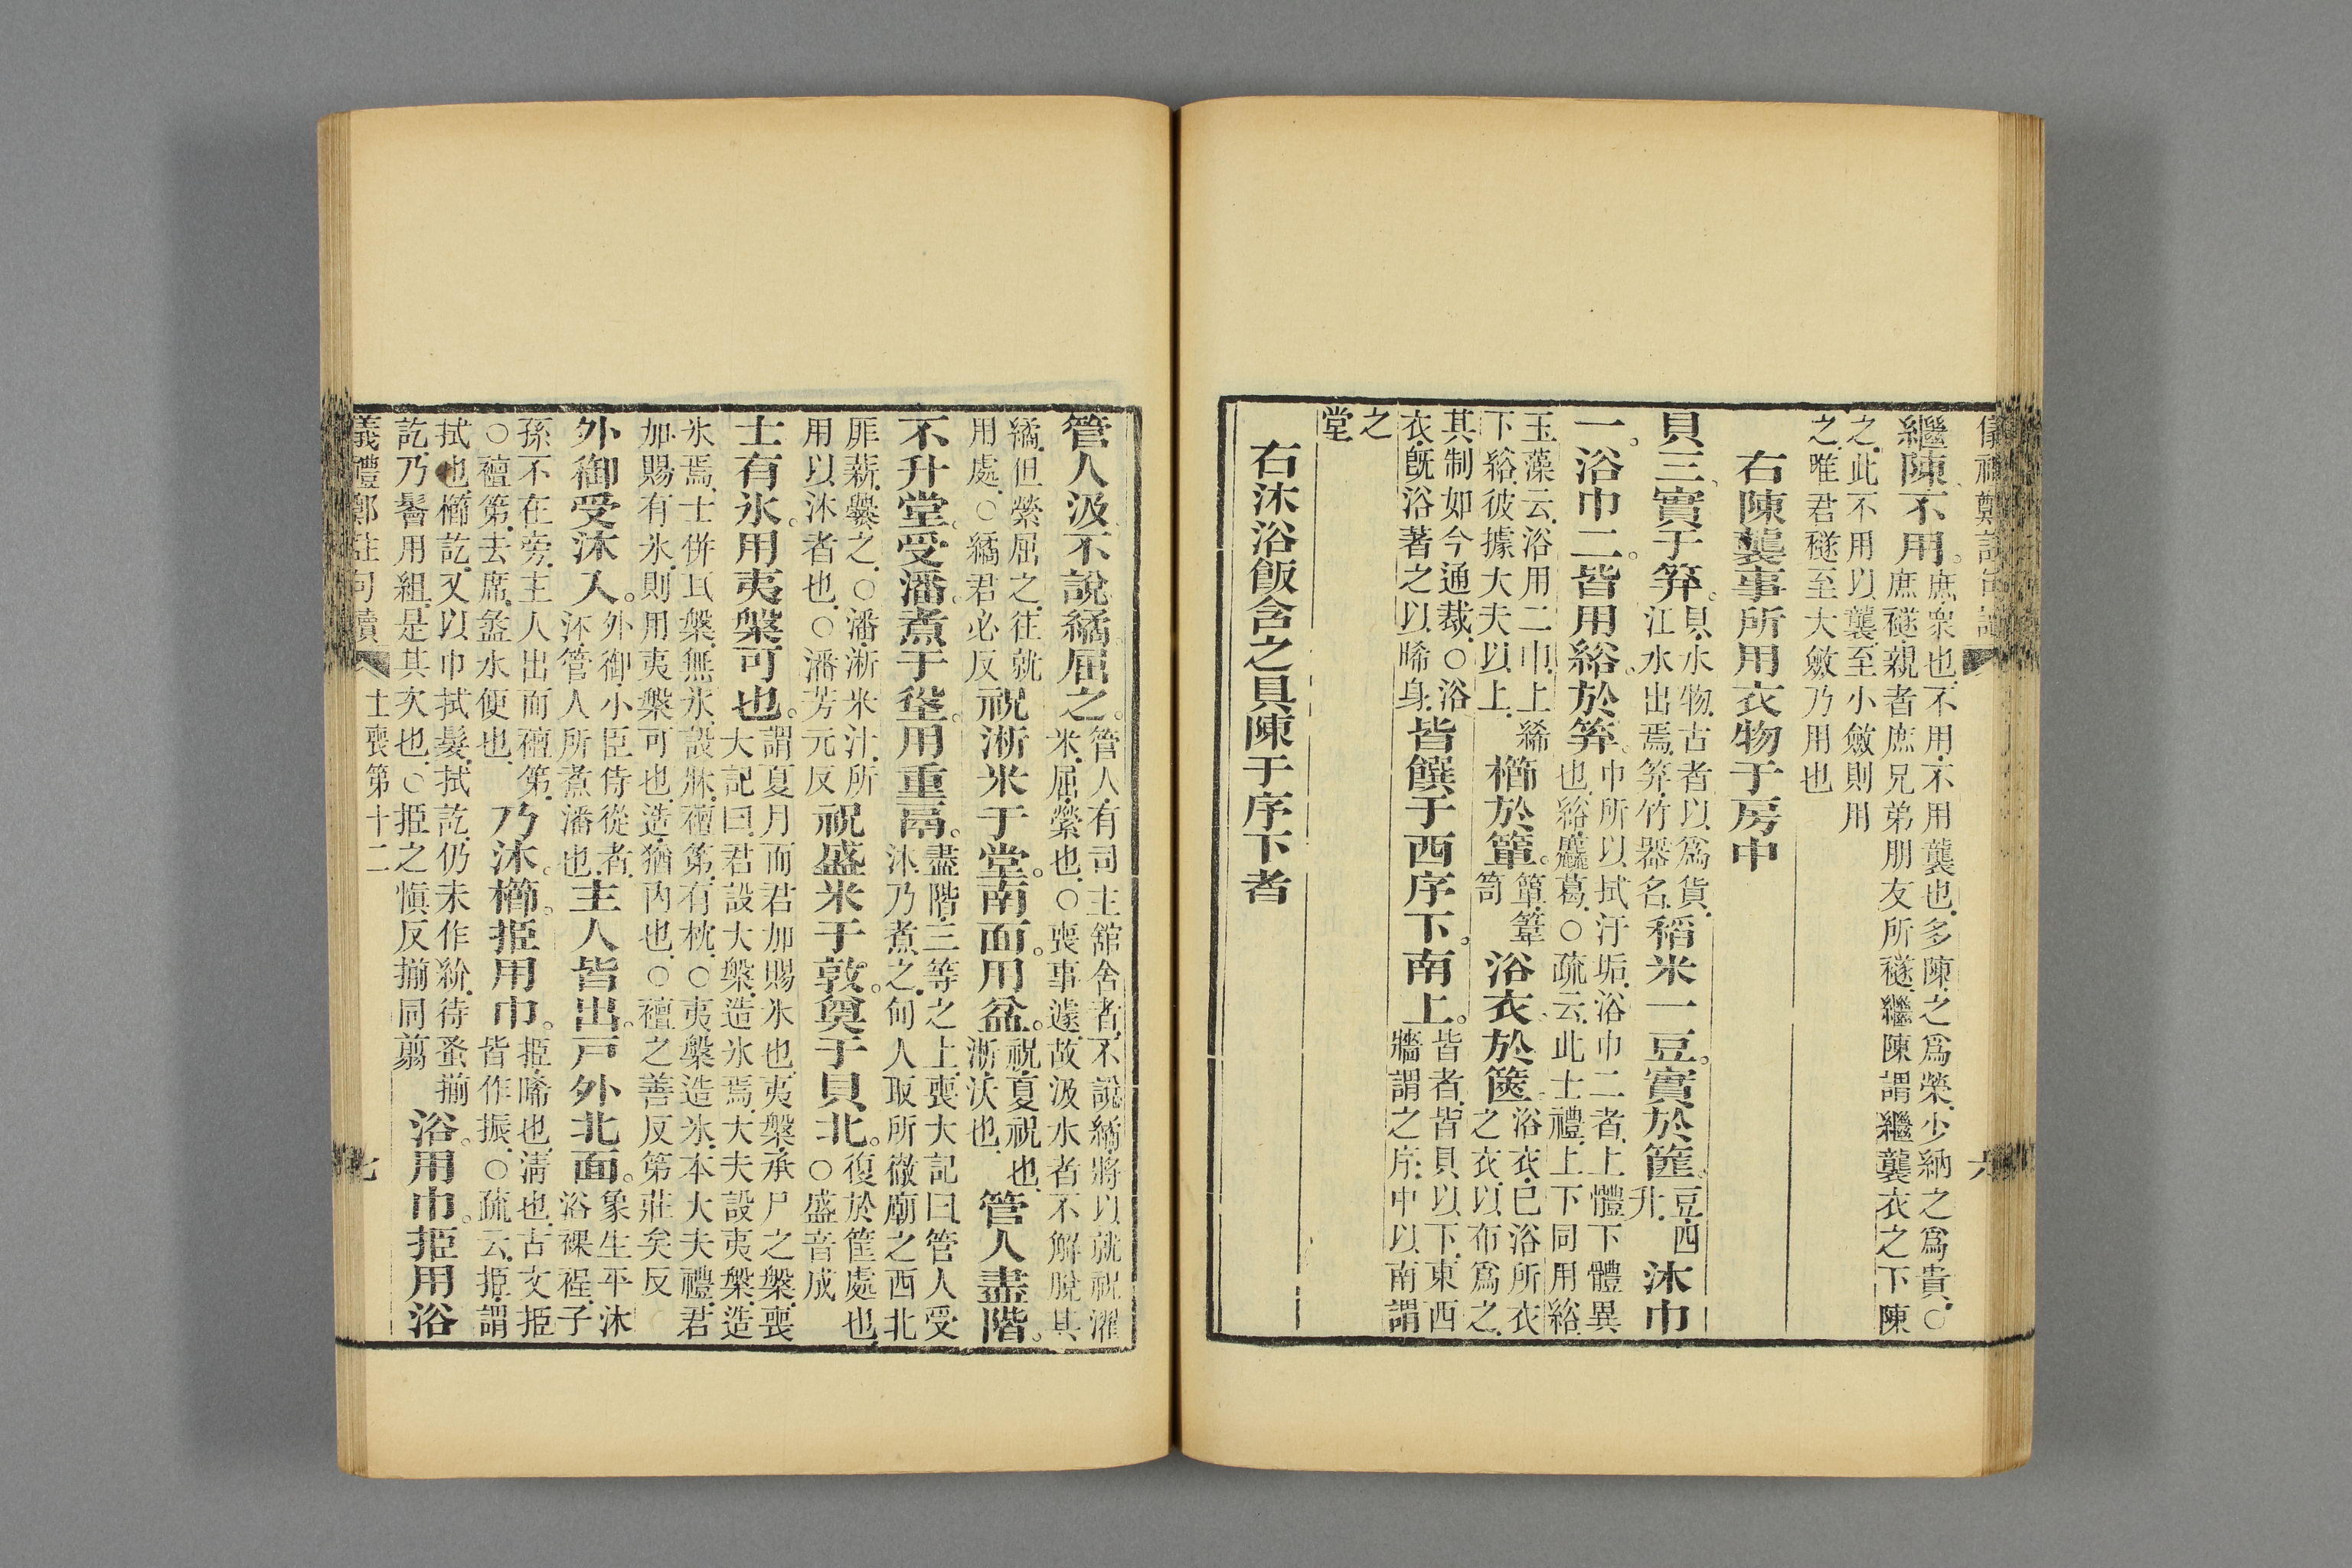 儀禮鄭註句讀 六
繼陳不用。庶衆也.不用.不用襲也.多陳之爲榮.少納之爲貴.○庶襚.親者庶兄弟朋友所襚.繼陳謂繼襲衣之下陳
之.此不用以襲至小斂則用之.唯君襚至大斂乃用也
右陳襲事所用衣物于房中
貝三實于笲。貝.水物.古者以爲貨.江水出焉.笲.竹器名.稻米一豆。實於筐。豆.四升.沐巾
一。浴巾二。皆用綌。於笲。巾所以拭汙垢.浴巾二者.上體下體異也.綌.麤葛.○疏云.此士禮上下同用綌.
玉藻云.浴用二巾.上絺下綌.彼據大夫以上.櫛於簞。簞.葦笥浴衣。於篋。浴衣.已浴所衣之衣.以布爲之.
其制如今通裁.○浴衣.旣浴著之以晞身.皆饌于西序下。南上。皆者.皆貝以下.東西牆謂之序.中以南謂
之堂
右沐浴飯含之具陳于序下者
管人汲不說繘。屈之。管人.有司主舘舍者.不說繘.將以就祝濯米.屈.縈也.○喪事遽.故汲水者不解脫其
繘.但縈屈之.往就用處.○繘君必反祝淅米于堂。南面。用盆。祝.夏祝也.淅.汏也.管人盡階。
不升堂。受潘。煮于垼。用重鬲。盡階.三等之上.喪大記曰.管人受沐.乃煮之.甸人取所徹廟之西北
厞薪.爨之.○潘.淅米汁.所用以沐者也.○潘芳元反祝盛米于敦。奠于貝北。復於筐處也.○盛音成
士有冰。用夷槃可也。謂夏月而君加賜冰也.夷槃.承尸之槃.喪大記曰.君設大槃.造冰焉.大夫設夷槃.造
冰焉.士併瓦槃.無冰.設牀.襢第.有枕.○夷槃造冰.本大夫禮.君加賜有冰.則用夷槃可也.造.猶內也.○襢之善反第莊矣反
外御受沐入。外御.小臣侍從者.沐管人所煮潘也.主人皆出。戶外北面。象生平沐浴裸裎.子
孫不在旁.主人出而襢第.○襢第.去席.盝水便也.乃沐。櫛。挋用巾。挋.晞也.清也.古文挋皆作振.○疏云.挋謂
拭也.櫛訖.又以巾拭髮.拭訖.仍未作紒.待蚤揃訖.乃鬠用組.是其次也.○挋之愼反揃同翦浴。用巾。挋用浴
儀禮鄭註句讀 士喪第十二 七